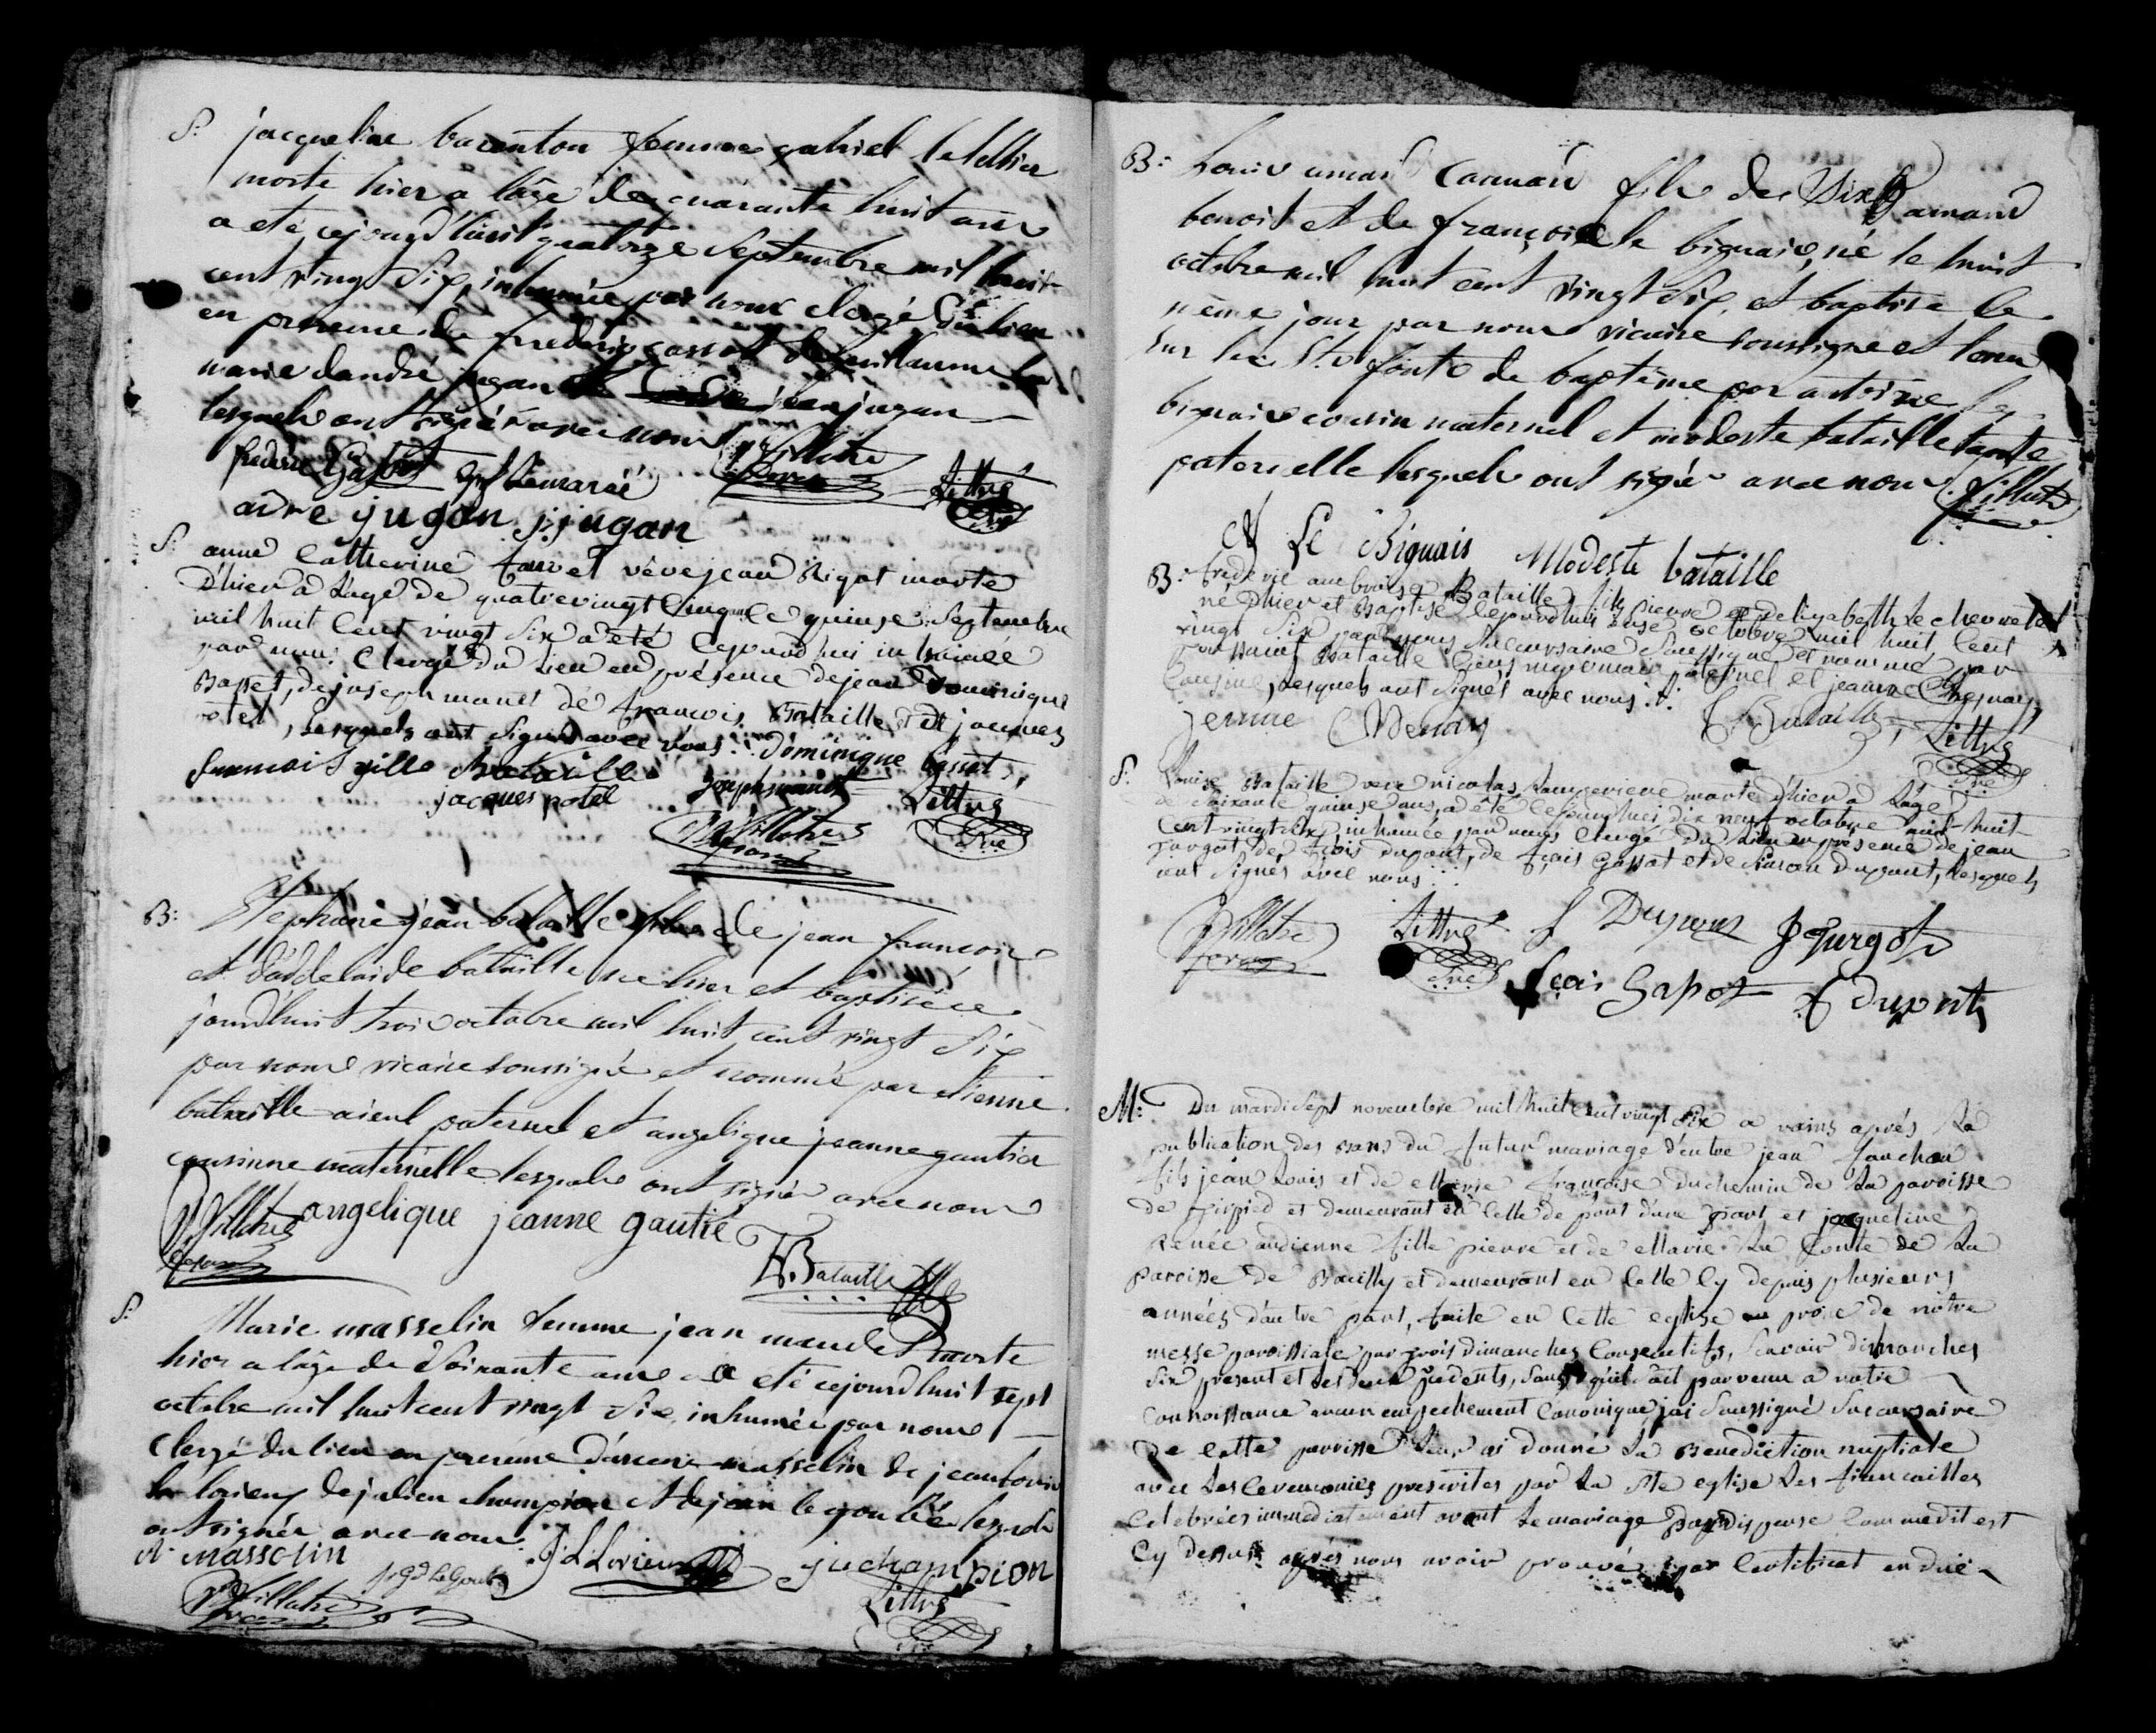 S: jacqueline barenton femme gabriel letellier
morte hier a l'âge de quarante huit ans
a eté cejourd'huit quatorze septembre mil huit
cent vingt six, inhumée par nous clergé du lieu
en presence de frederic gassot de guillaume le
marié dandré jugan et jean jugan
lesquels ont signés avec nous
frederic Gassot lemarié Littré
adre jugan j:jugan
S: anne Catherine fauvel veve jean Rigot morte
D'hier à L'age de quatre vingt Cinq Le quinse Septembre
mil huit Cent vingt Six a été Cejourd'hui inhumée
par nous Clergé du Lieu en présence de jean Dominique
Basset, de joseph manet de françois Bataille et de jacques
potel, Lesquels ont Signés avec nous: dominique basset
Bataille joseph manet Littré
jacques potel
B: Stephane jean bataille fils de jean francois
et d'addelaide bataille né hier et baptisé ce
jourd'huit trois octobre mil huit cent vingt six
par nous vicaire soussigné et nommé par etienne
bataille aieul paternel et angelique jeanne gautier
cousinne maternelle lesquels ont signés avec nous
angelique jeanne gautie
E Bataille
S: Marie masselin femme jean mandet morte
hier a l'âge de soixante ans a eté cejourd'huit sept
octobre mil huit cent vingt six inhumée par nous
Clergé du lieu en presence masselin de jean louis
de julien champion et de jean le goubé lesquels
ont signés avec nous
masselin J L Lorieux ju champion
Littré
B: Louis aman fils de Sixte amand
benoit et de françoise le biguais, né le huit
octobre mil huit cent vingt six, et baptisé le
même jour par nous vicaire soussigné et tenu
sur les Sts fonts de baptême par antoine le
biguais cousin maternel et modeste bataille tante
paternelle lesquels ont signés avec nous
A Le Biguais Modeste bataille
B: frederic ambroise Bataille fils pierre et delizabeth Le chevretel
né D'hier et Baptisé Cejourd'huis onse octobre mil huit Cent
vingt Six par nous Succursaire Soussigné et nommé par
toussaint Bataille Cousin paternel et jeanne Chesnay
Cousine, Lesquels ont Signés avec nous.
jenne Chenay T Bataille Littré
S: Louise Bataille veve nicolas morte d'hier à L'âge
de Soixante quinse ans, a été Cejourd'hui dix neuf octobre mil huit
Cent vingt six, inhumée par nous Clergé du Lieu en présence de jean
Turgot de fcois dupont, de fcois Gassot et de Simon Dupont, Lesquels
ont Signés avec nous
Littré S Dupont J Turgot
fcois Gasot f dupont
M: Du mardi Sept novembre mil huit Cent vingt Six a vains aprés La
publication des Bans du futur mariage d'entre jean fauchon
fils jean Louis et de Marie françoise duchemin de La paroisse
de Sirpied et demeurant en Celle de pont d'une part et jacqueline
Renée audienne fille pierre et de Marie Le Conte de La
paroisse de Bouilly et demeurant en Celle Cy depuis plusieurs
années d'autre part, faite en Cette eglise au prone de notre
messe paroissiale par trois dimanches Consecutifs, Scavoir dimanches
Six present et Les deux precedents, Sans qu'il Soit parvenu a notre
Connoissance aucun empechement Canonique jai Soussigné Succursaire
De Cette paroisse Leur ai donné La Benediction nuptiale
avec Les Ceremonies prescrites par La Ste eglise Les fiançailles
Celebrées immediatement avant Le mariage par dispense Comme dit est
Cy dessus aprés nous avoir prouvé par Certificat en due